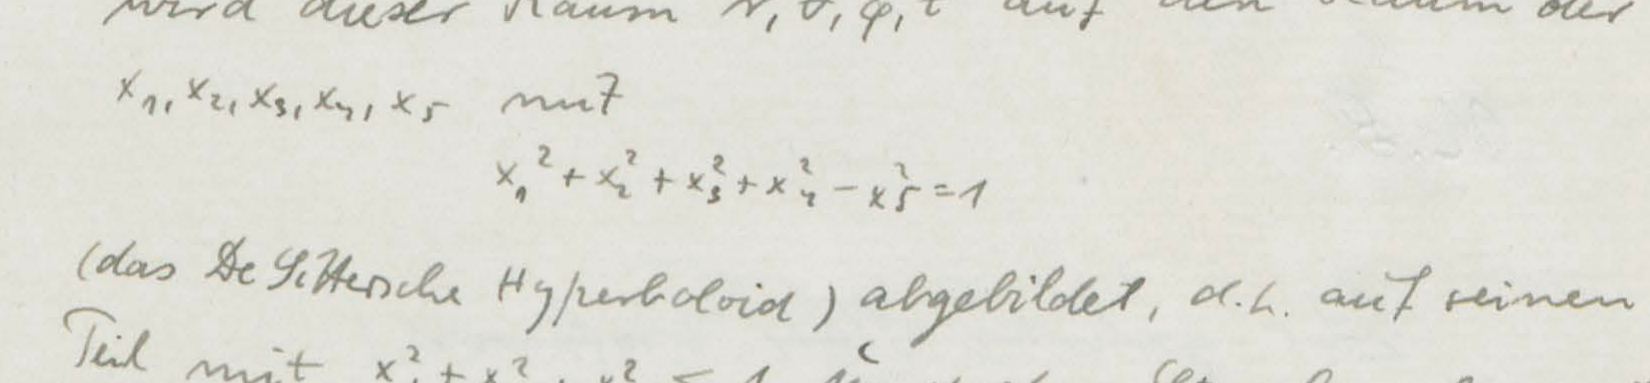 wird dieser Raum r, ϑ, φ, t auf den Raum der
x₁, x₂, x₃, x₄, x₅ mit
x₁² + x₂² + x₃² + x₄² − x₅² = 1
(das De Sittersche Hyperboloid) abgebildet, d.h. auf seinen
Teil mit